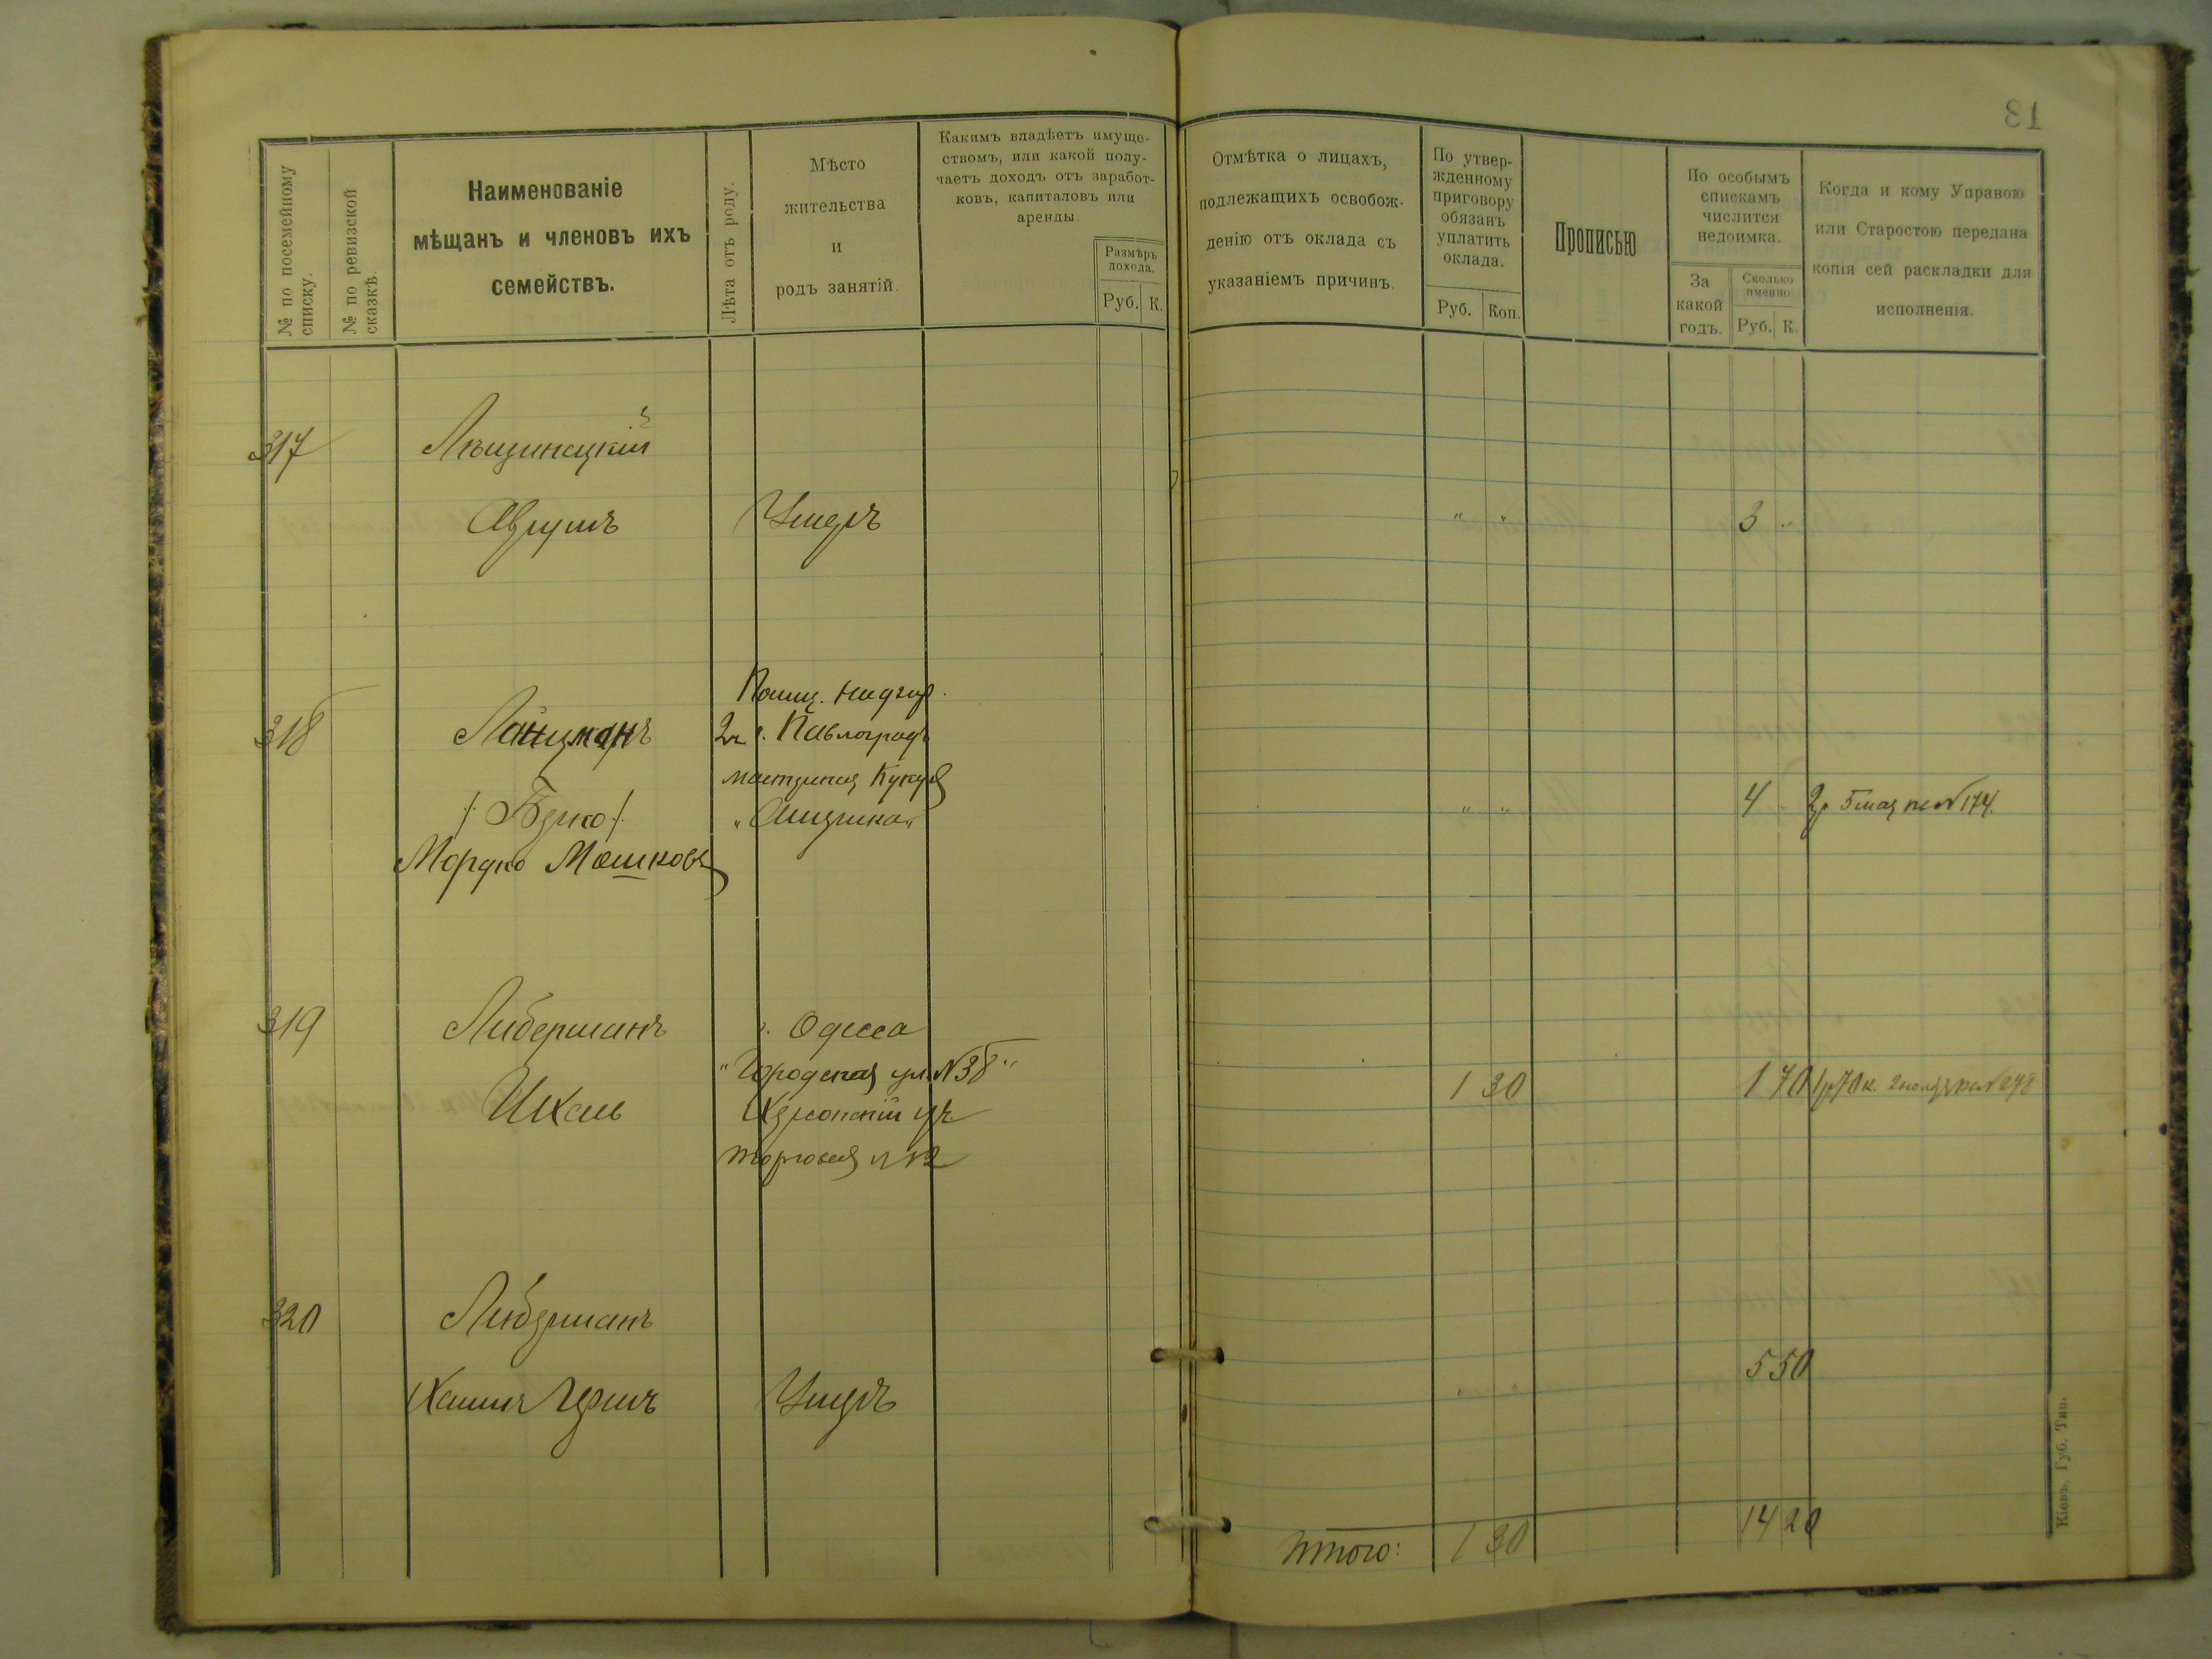 81
№ по посемейному
списку.
№ по ревизской
сказкѣ.
Наименованіе
мѣщанъ и членовъ ихъ
семействъ.
Лѣта отъ роду.
Мѣсто
жительства
и
родъ занятій.
Какимъ владѣетъ имуще-
ствомъ, или какой полу-
чаетъ доходъ отъ заработ-
ковъ, капиталовъ или
аренды.
Размѣръ
дохода.
Руб. К.
Отмѣтка о лицахъ,
подлежащихъ освобож-
денію отъ оклада съ
указаніемъ причинъ.
По утвер-
жденному
приговору
обязанъ
уплатить
оклада.
Руб. Коп.
Прописью
По особымъ
спискамъ
числится
недоимка.
За
какой
годъ.
Сколько
именно
Руб. К.
Когда и кому Управою
или Старостою передана
копія сей раскладки для
исполненія.
317 Лещинецкій
Аврумъ Умеръ " " 3 "
318 Ланцманъ
г. Павлоградъ
/:Берко:/ " " 4 - 5 мая № 174.
Мордко Мошковъ
319 Либерманъ г. Одесса
"Городская ул. № 38"
Ихель Херсонскій уч. 1 30 1 70 1 р 70 к.
торговая № 12
320 Либерманъ
5 50
Хаимъ Гершъ Умеръ " "
Итого: 1 30 14 20
Кіевъ, Губ. Тип.